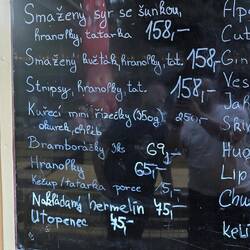 Smažený syr se šunkou,
hranolky, tatarka 158,-
Smažený květák, hranolky, tat. 158,-
Stripsy, hranolky, tat. 158,-
Kuřecí mini řízečky (350g)
okurek, chléb
Bramboráčky 3ks 69,-
Hranolky 65,-
Kečup/tatarka porce 5,-
Nakládaný hermelín 45,-
Utopenec 45,-
Cut
Gin
Ves
Lip